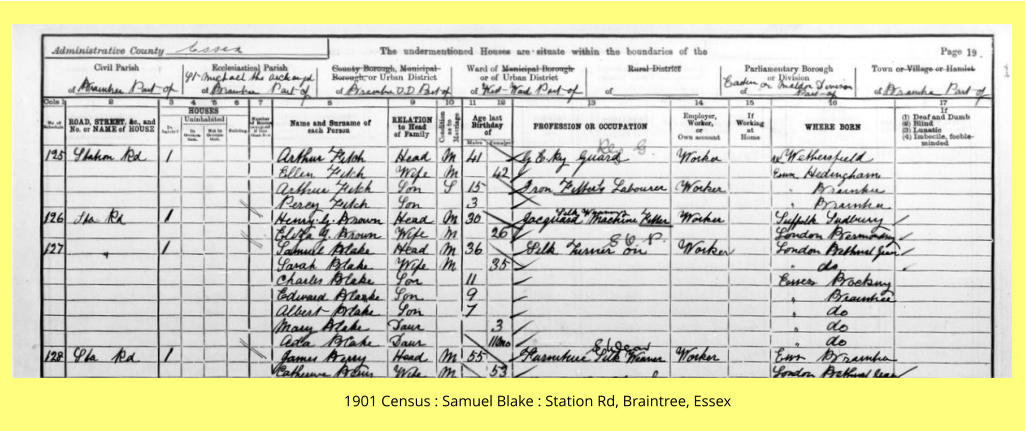 Administrative County Essex The undermentioned Houses are situate within the boundaries of the Page 19
Civil Parish Ecclesiastical Parish County Borough, Municipal Borough, or Urban District Ward of Municipal Borough or of Urban District Rural District Parliamentary Borough or Division Town or Village or Hamlet
of Braintree Part of of St Michael the Archangel Braintree Part of of Braintree U.D Part of of West Ward Part of of of Maldon Division Part of of Braintree Part of
Cols 1 2 3 4 5 6 7 8 9 10 11 12 13 14 15 16 17
No. of Schedule ROAD, STREET, &c., and No. or NAME of HOUSE HOUSES Inhabited Uninhabited Name and Surname of each Person RELATION to Head of Family Condition as to Marriage Age last Birthday of Males Females PROFESSION OR OCCUPATION Employer, Worker, or Own account If Working at Home WHERE BORN If (1) Deaf and Dumb (2) Blind (3) Lunatic (4) Imbecile, feeble-minded
125 Station Rd 1 Arthur Fitch Head M 41 G.E.Ry Guard Worker Wethersfield
Ellen Fitch Wife M 42 Essex Hedingham
Arthur Fitch Son S 15 Iron Fitter's Labourer Worker " Braintree
Percy Fitch Son 3 " Braintree
126 Sta Rd 1 Henry G. Brown Head M 30 Jacquard Machine Fitter Worker Suffolk Sudbury
Eliza G. Brown Wife M 26 London Bermondsey
127 " 1 Samuel Blake Head M 36 Silk Turner on Worker London Bethnal Green
Sarah Blake Wife M 35 " do
Charles Blake Son 11 Essex Bocking
Edward Blake Son 9 " Braintree
Albert Blake Son 7 " do
Mary Blake Daur 3 " do
Ada Blake Daur 11mo " do
128 Sta Rd 1 James Head M 55 Silk Weaver Worker Essex Braintree
Catherine Wife M 53 London Bethnal Green
1901 Census : Samuel Blake : Station Rd, Braintree, Essex